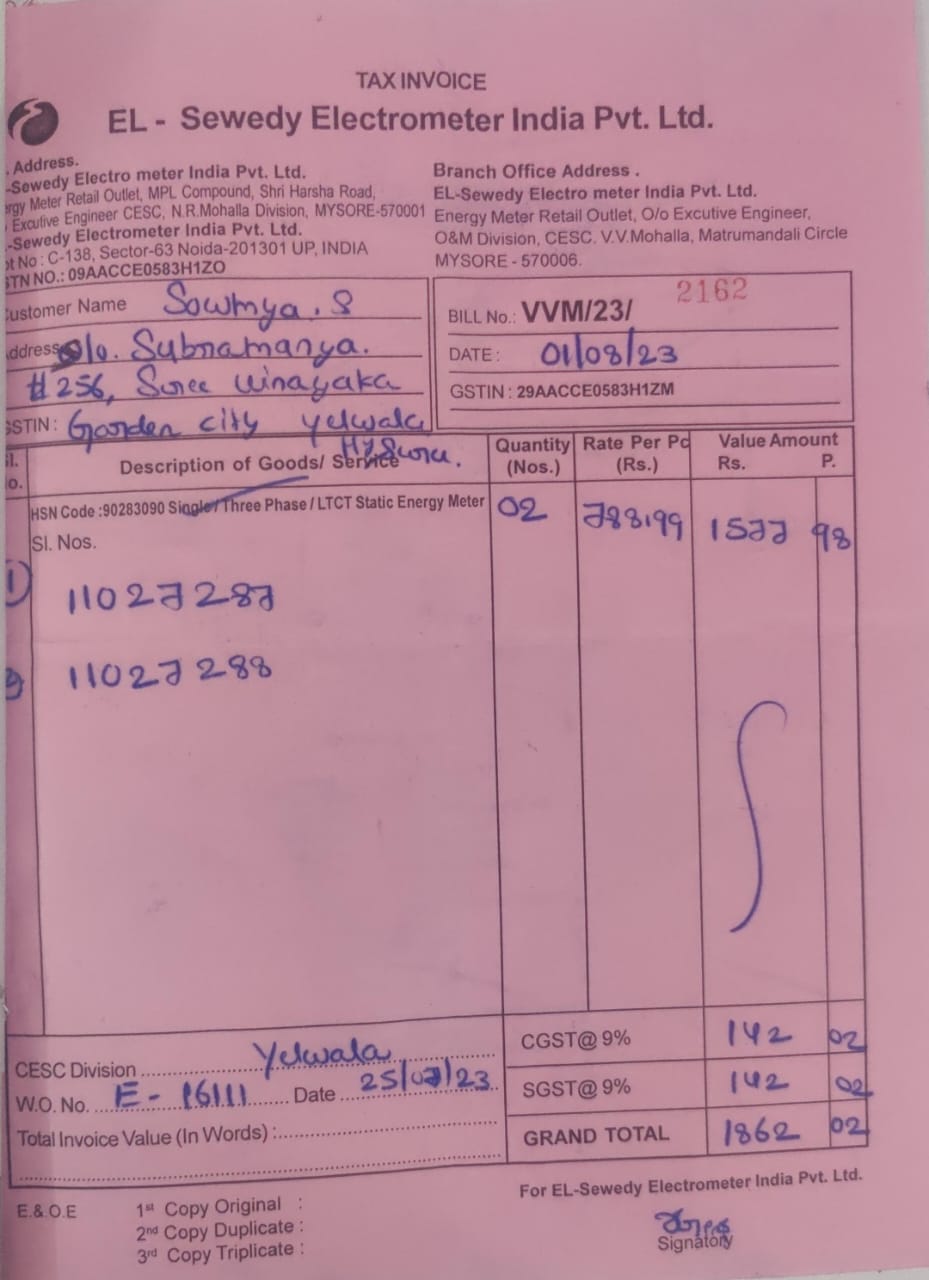 TAX INVOICE
EL - Sewedy Electrometer India Pvt. Ltd.
. Address.
-Sewedy Electro meter India Pvt. Ltd.
ergy Meter Retail Outlet, MPL Compound, Shri Harsha Road,
Excutive Engineer CESC, N.R.Mohalla Division, MYSORE-570001
-Sewedy Electrometer India Pvt. Ltd.
ot No : C-138, Sector-63 Noida-201301 UP, INDIA
STN NO.: 09AACCE0583H1ZO
Branch Office Address .
EL-Sewedy Electro meter India Pvt. Ltd.
Energy Meter Retail Outlet, O/o Excutive Engineer,
O&M Division, CESC. V.V.Mohalla, Matrumandali Circle
MYSORE - 570006.
ustomer Name Sowmya . S
ddress /o. Subramanya.
#256, Sree Winayaka
GSTIN : Garden city Yelwala
Mysore.
BILL No.: VVM/23/ 2162
DATE : 01/08/23
GSTIN : 29AACCE0583H1ZM
l. o. Description of Goods/ Service Quantity (Nos.) Rate Per Pc (Rs.) Value Amount Rs. P.
HSN Code :90283090 Single/Three Phase / LTCT Static Energy Meter 02 788.99 1577 98
Sl. Nos.
1) 11027287
2) 11027288
CGST@ 9% 142 02
SGST@ 9% 142 02
GRAND TOTAL 1862 02
CESC Division ........ Yelwala
W.O. No. E - 16111 Date 25/07/23
Total Invoice Value (In Words) :
E.& O.E
1st Copy Original :
2nd Copy Duplicate :
3rd Copy Triplicate :
For EL-Sewedy Electrometer India Pvt. Ltd.
Signatory